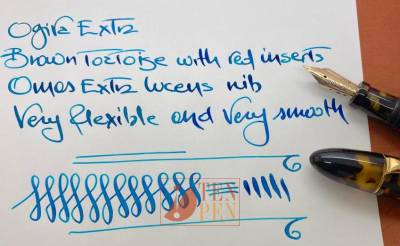 Ogiva Extra
Brown Tortoise with red inserts
Omas Extra Lucens nib
Very flexible and very smooth
TEN
PEN